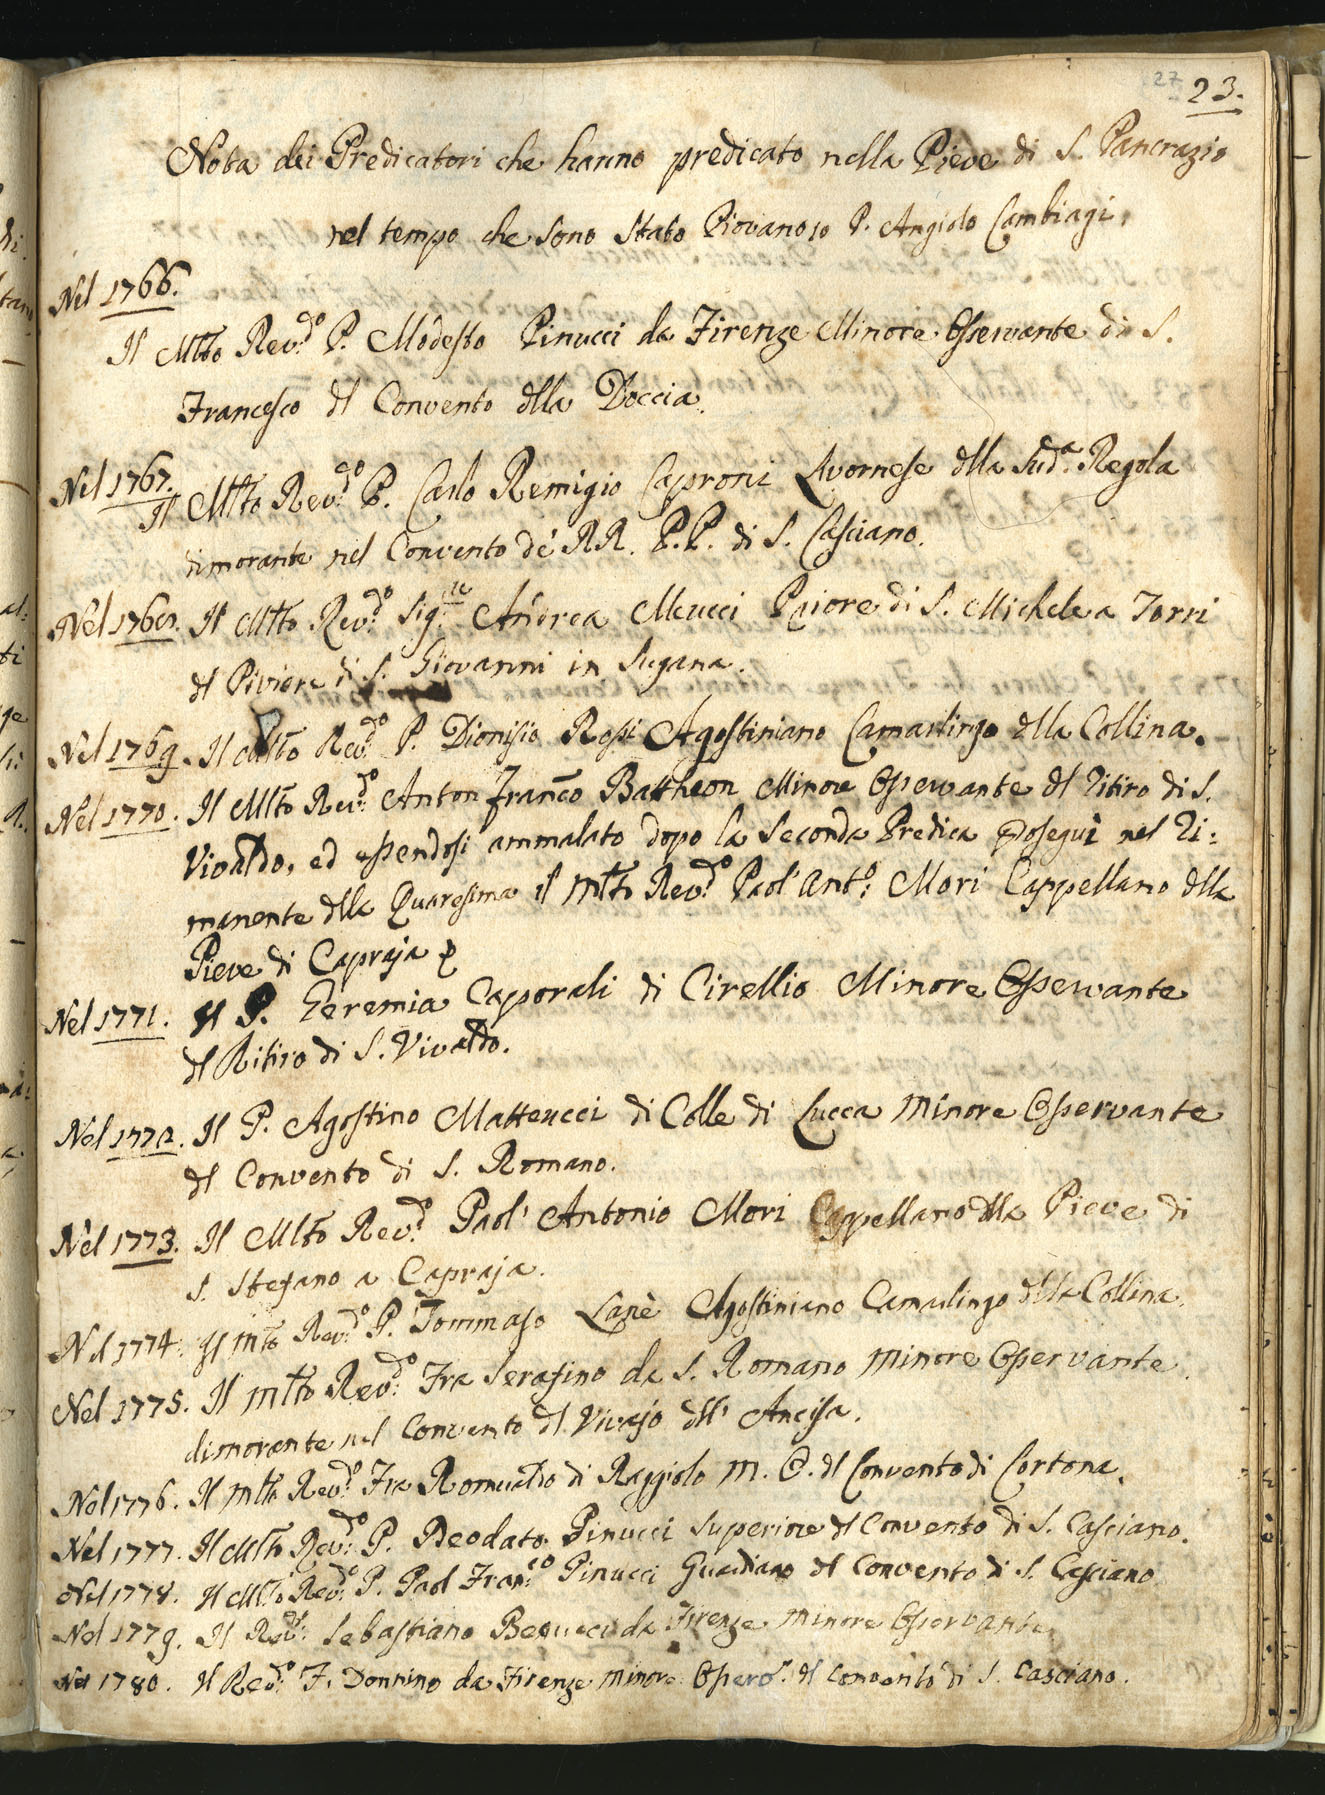 27 23.
Nota dei Predicatori che hanno predicato nella Pieve di S. Pancrazio
nel tempo che sono stato Piovano io P. Angiolo Cambiagi.
Nel 1766.
Il Mlto Revdo P. Modesto Pinucci da Firenze Minore Osservante di S.
Francesco del Convento della Doccia.
Nel 1767.
Il Mlto Revdo P. Carlo Remigio Caproni Livornese della Suda Regola
dimorante nel Convento de' RR. P.P. di S. Casciano.
Nel 1768. Il Mlto Revdo Sigre Andrea Meucci Priore di S. Michele a Torri
del Piviere di S. Giovanni in Sugana.
Nel 1769. Il Mlto Revdo P. Dionisio Rossi Agostiniano Camarlingo della Collina.
Nel 1770. Il Mlto Revdo Anton Franco Battheon Minore Osservante del Ritiro di S.
Vivaldo, ed essendosi ammalato dopo la Seconda Predica proseguì nel Ri:
manente della Quaresima il Mlto Revdo Paol' Anto: Mori Cappellano della
Pieve di Capraja
Nel 1771. Il P. Geremia Caporali di Cirellio Minore Osservante
del Ritiro di S. Vivaldo.
Nel 1772. Il P. Agostino Matteucci di Colle di Lucca Minore Osservante
del Convento di S. Romano.
Nel 1773. Il Mlto Revdo Paol' Antonio Mori Cappellano della Pieve di
S. Stefano a Capraja.
Nel 1774. Il Mlto Revdo P. Tommaso Lanè Agostiniano Camarlingo della Collina.
Nel 1775. Il Mlto Revdo Fra Serafino da S. Romano Minore Osservante
dimorante nel Convento del Vivajo dell' Ancisa.
Nel 1776. Il Mlto Revdo Fra Romualdo di Raggiolo M. O. del Convento di Cortona.
Nel 1777. Il Mlto Revdo P. Deodato Pinucci Superiore del Convento di S. Casciano.
Nel 1778. Il Mlto Revdo P. Paol Franco Pinucci Guardiano del Convento di S. Casciano
Nel 1779. Il Revdo Sebastiano da Firenze Minore Osservante
Nel 1780. Il Revdo F. Donnino da Firenze Minore Osserve del Convento di S. Casciano.